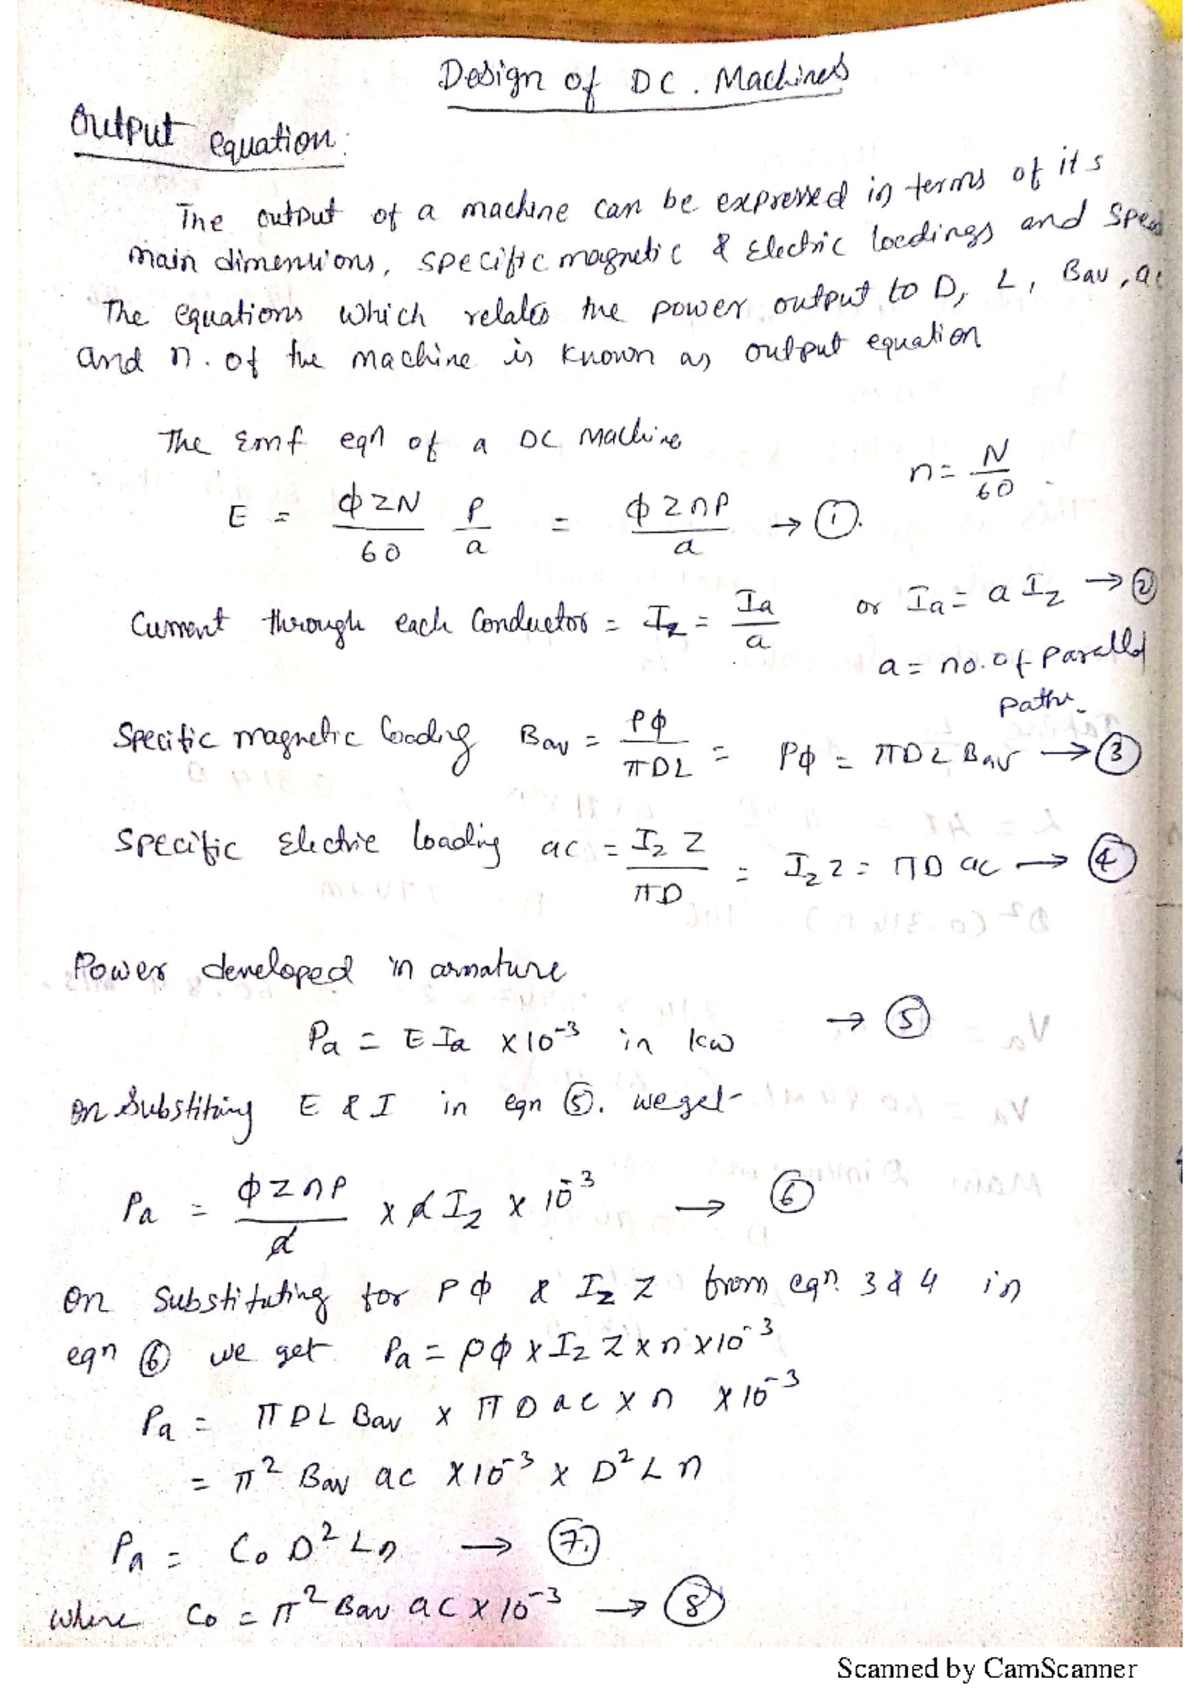 Design of DC. Machines
Output equation:
The output of a machine can be expressed in terms of its
main dimensions, specific magnetic & Electric loadings and Speed
The equations which relates the power output to D, L, Bav, ac
and n. of the machine is known as output equation
The Emf eqn of a DC Machine
n = N/60
E = ΦZN/60 P/a = ΦZnP/a → ①.
Current through each Conductor = Iz = Ia/a or Ia = a Iz → ②
a = no. of parallel
path.
Specific magnetic loading Bav = PΦ/πDL = PΦ = πDL Bav → ③
Specific Electric loading ac = Iz Z/πD = Iz Z = πD ac → ④
Power developed in armature
Pa = E Ia ×10⁻³ in kw → ⑤
on Substiting E & I in eqn ⑤. we get-
Pa = ΦZnP/a × a Iz × 10⁻³ → ⑥
on substituting for PΦ & Iz Z from eqn. 3 & 4 in
eqn ⑥ we get Pa = PΦ × Iz Z × n × 10⁻³
Pa = πDL Bav × πD ac × n × 10⁻³
= π² Bav ac × 10⁻³ × D² L n
Pa = Co D² Ln → ⑦.
where Co = π² Bav ac × 10⁻³ → ⑧
Scanned by CamScanner